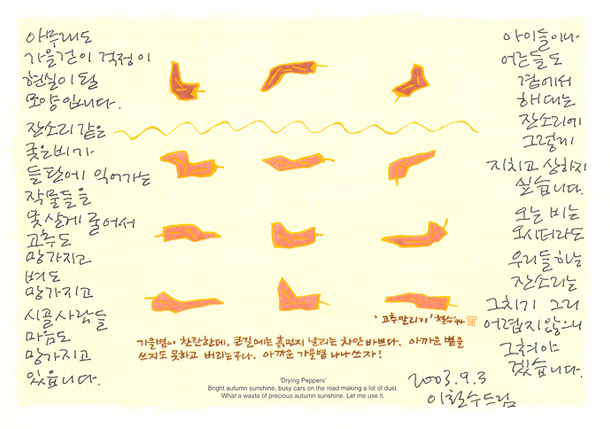 아무래도
가을걷이 걱정이
현실이 될
모양입니다.
잔소리 같은
궂은비가
들판에 익어가는
작물들을
못살게 굴어서
고추도
망가지고
벼도
망가지고
시골사람들
마음도
망가지고
있습니다.
아이들이나
어른들도
곁에서
해대는
잔소리에
그렇게
지치고 상하지
싶습니다.
오는 비는
오시더라도
우리들 하는
잔소리는
그치기 그리
어렵지 않으니
그쳐야
겠습니다.
2003.9.3
이철수드림
'고추말리기' 철수
가을볕이 찬란한데, 큰길에는 흙먼지 날리는 차만 바쁘다. 아까운 볕을
쓰지도 못하고 버리는구나. 아까운 가을볕 나나 쓰자!
'Drying Peppers'
Bright autumn sunshine, busy cars on the road making a lot of dust.
What a waste of precious autumn sunshine. Let me use it.